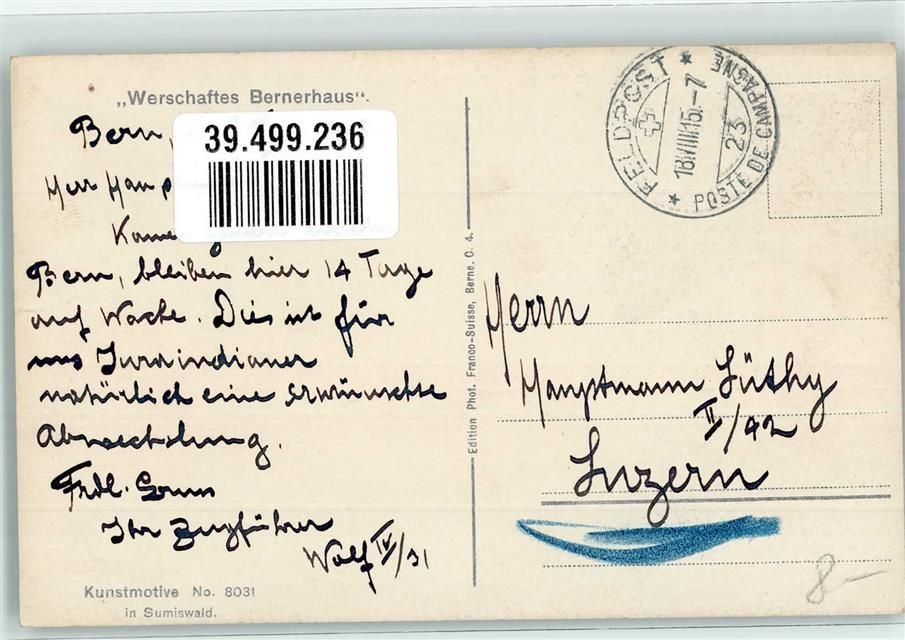 „Werschaftes Bernerhaus“.
Bern,
39.499.236
Herr Haup
Kame
Bern, bleiben hier 14 Tage
auf Wache. Dies ist für
uns Juraindianer
natürlich eine erwünschte
Abwechslung.
Frdl. Gruss
Ihr Zugführer
Wolf IV/31
Kunstmotive No. 8031
in Sumiswald.
Edition Phot. Franco-Suisse, Berne. C. 4.
FELDPOST
18.VIII.15.-7
23
POSTE DE CAMPAGNE
Herrn
Hauptmann Lüthy
II/42
Luzern
8-